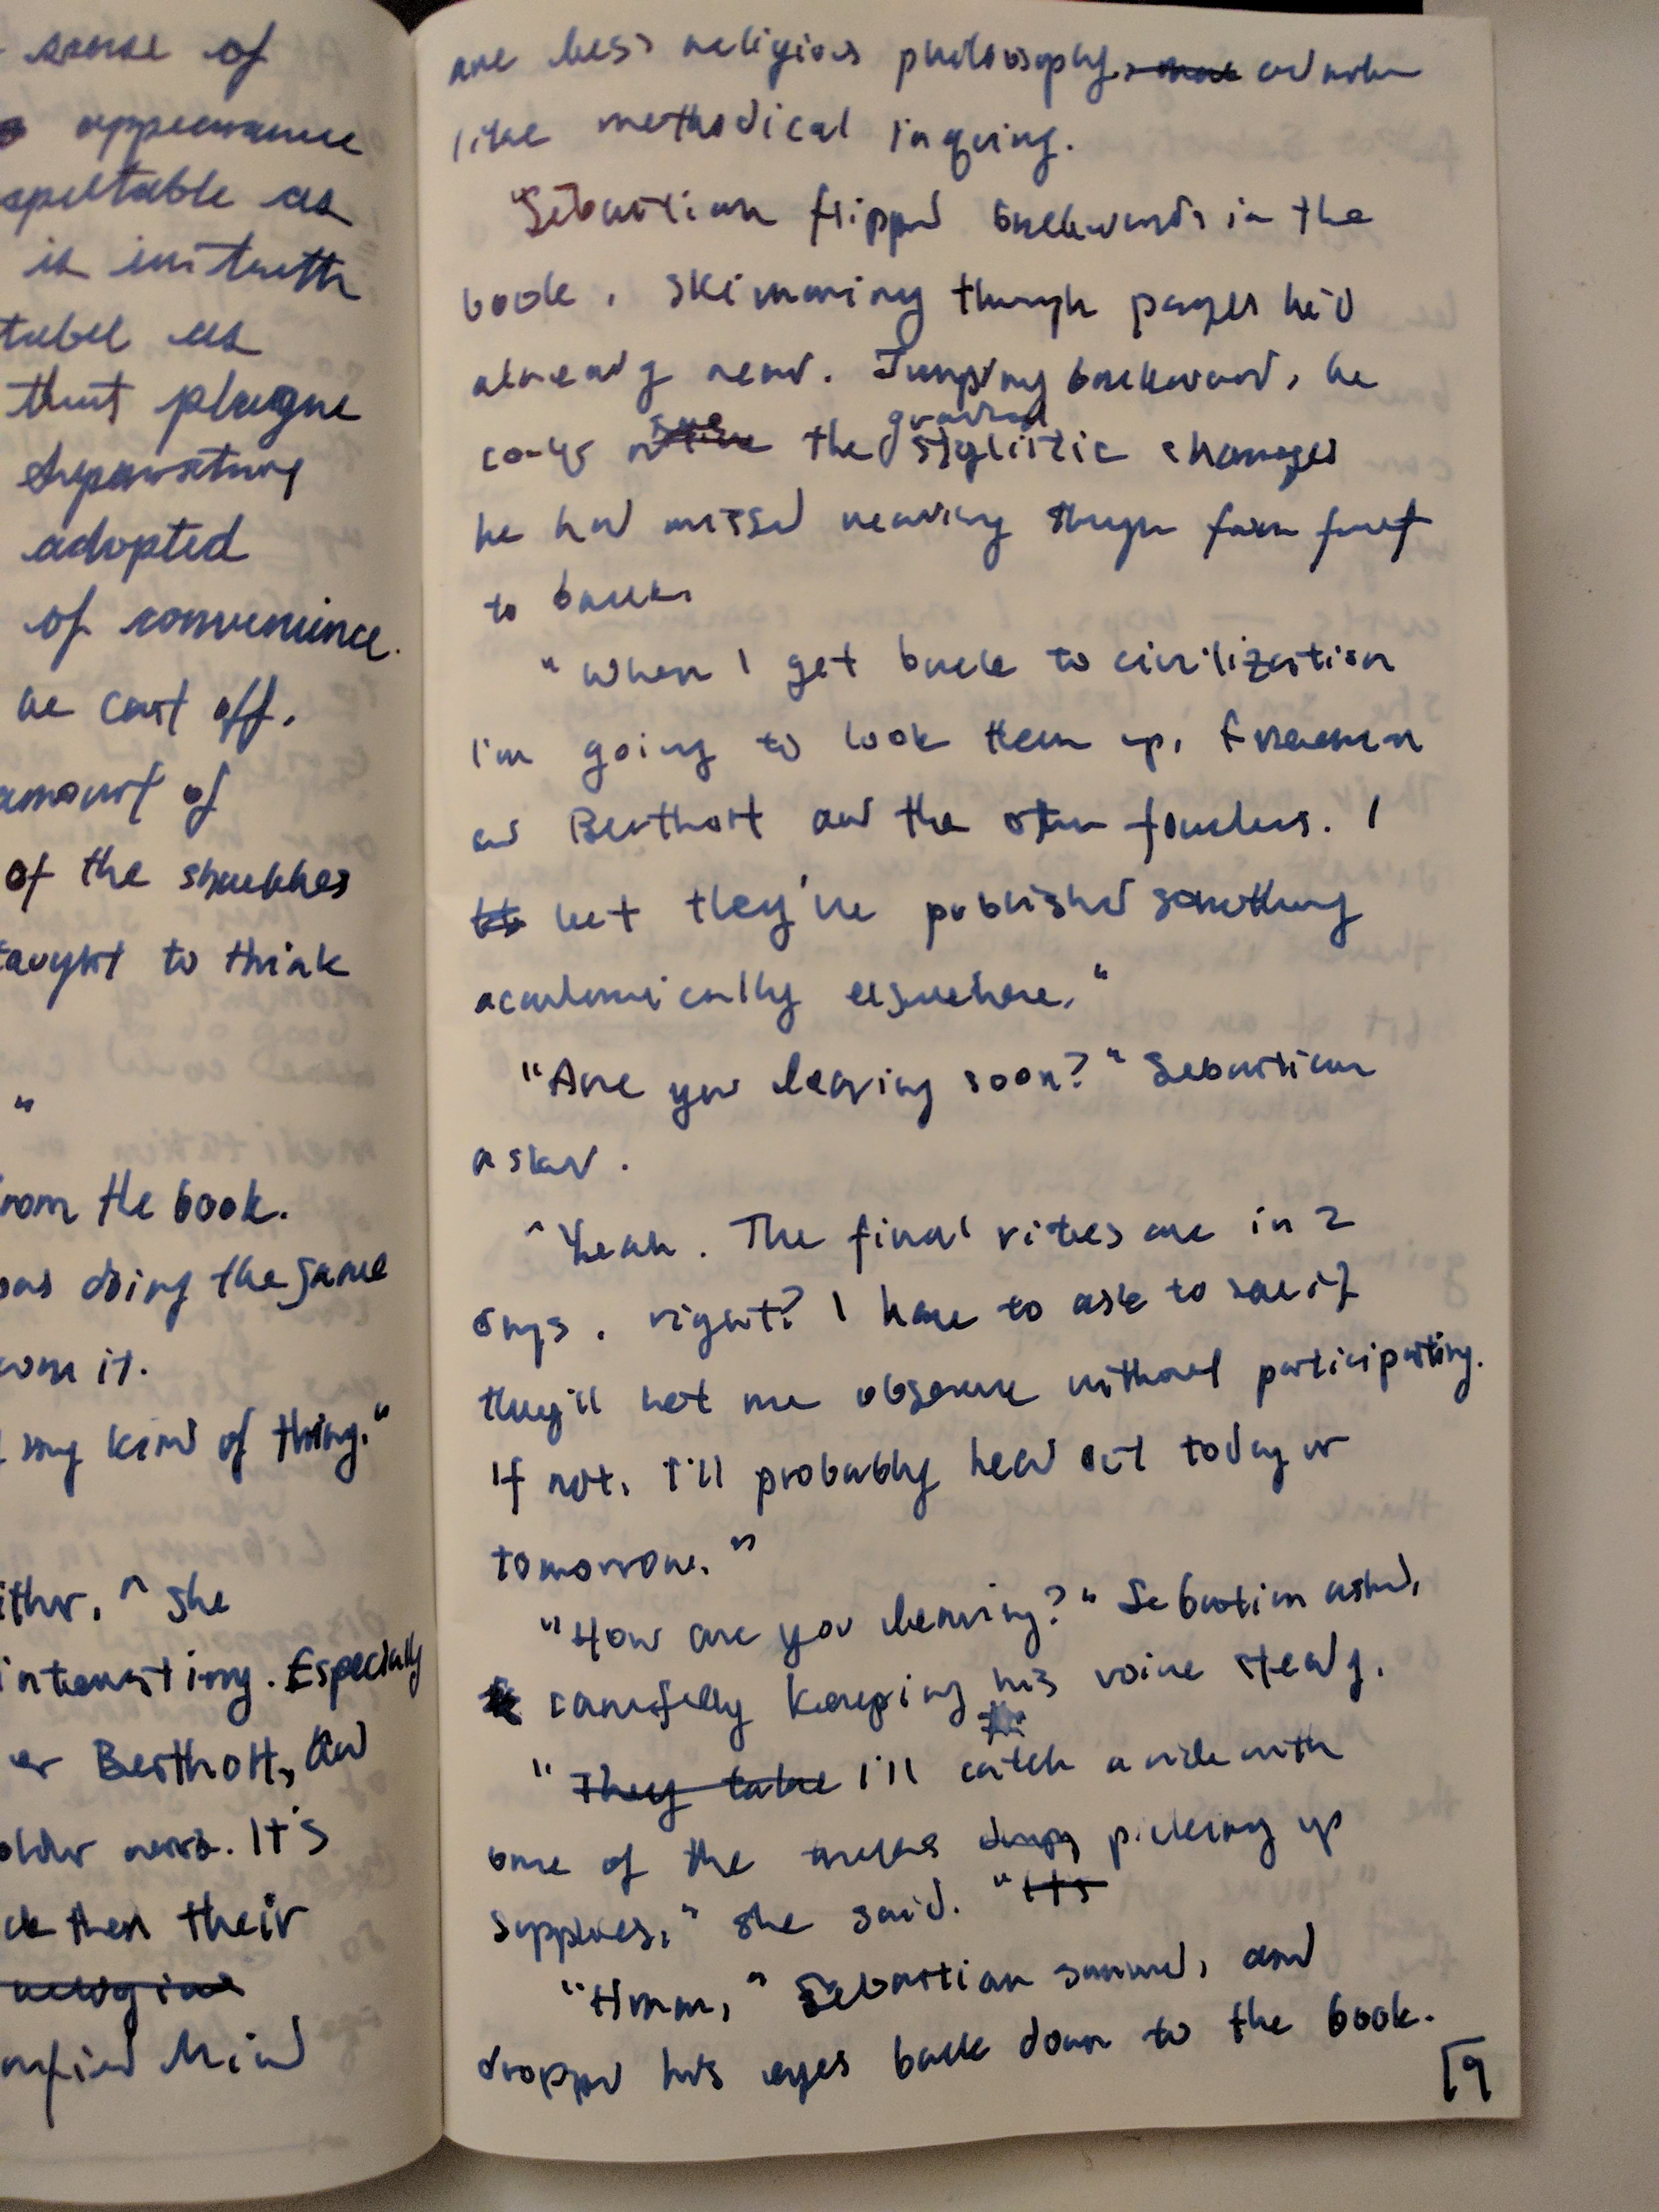 sense of
appearance
spectable as
is in truth
tabel as
that plague
departing
adopted
of convenience.
be cast off.
amount of
of the shackles
taught to think
"
from the book.
was doing the same
from it.
my kind of thing."
ither," she
interesting. Especially
or Berthott, and
older work. It's
ck then their
religious
nified Mind
are less religious philosophy, and more
like methodical inquiring.
"Sebastian flipped backwards in the
book, skimming through pages he'd
already read. Jumping backward, he
could see the gradual stylistic changes
he had missed reading through from front
to back.
"When I get back to civilization
I'm going to look them up, Freeman
and Berthott and the other founders. I
bet they've published something
academically elsewhere."
"Are you leaving soon?" Sebastian
asked.
"Yeah. The final rites are in 2
days, right? I have to ask to see if
they'll let me observe without participating.
If not, I'll probably head out today or
tomorrow."
"How are you leaving?" Sebastian asked,
carefully keeping his voice steady.
"They take I'll catch a ride with
one of the trucks picking up
supplies," she said. "It's
"Hmm," Sebastian said, and
dropped his eyes back down to the book.
19